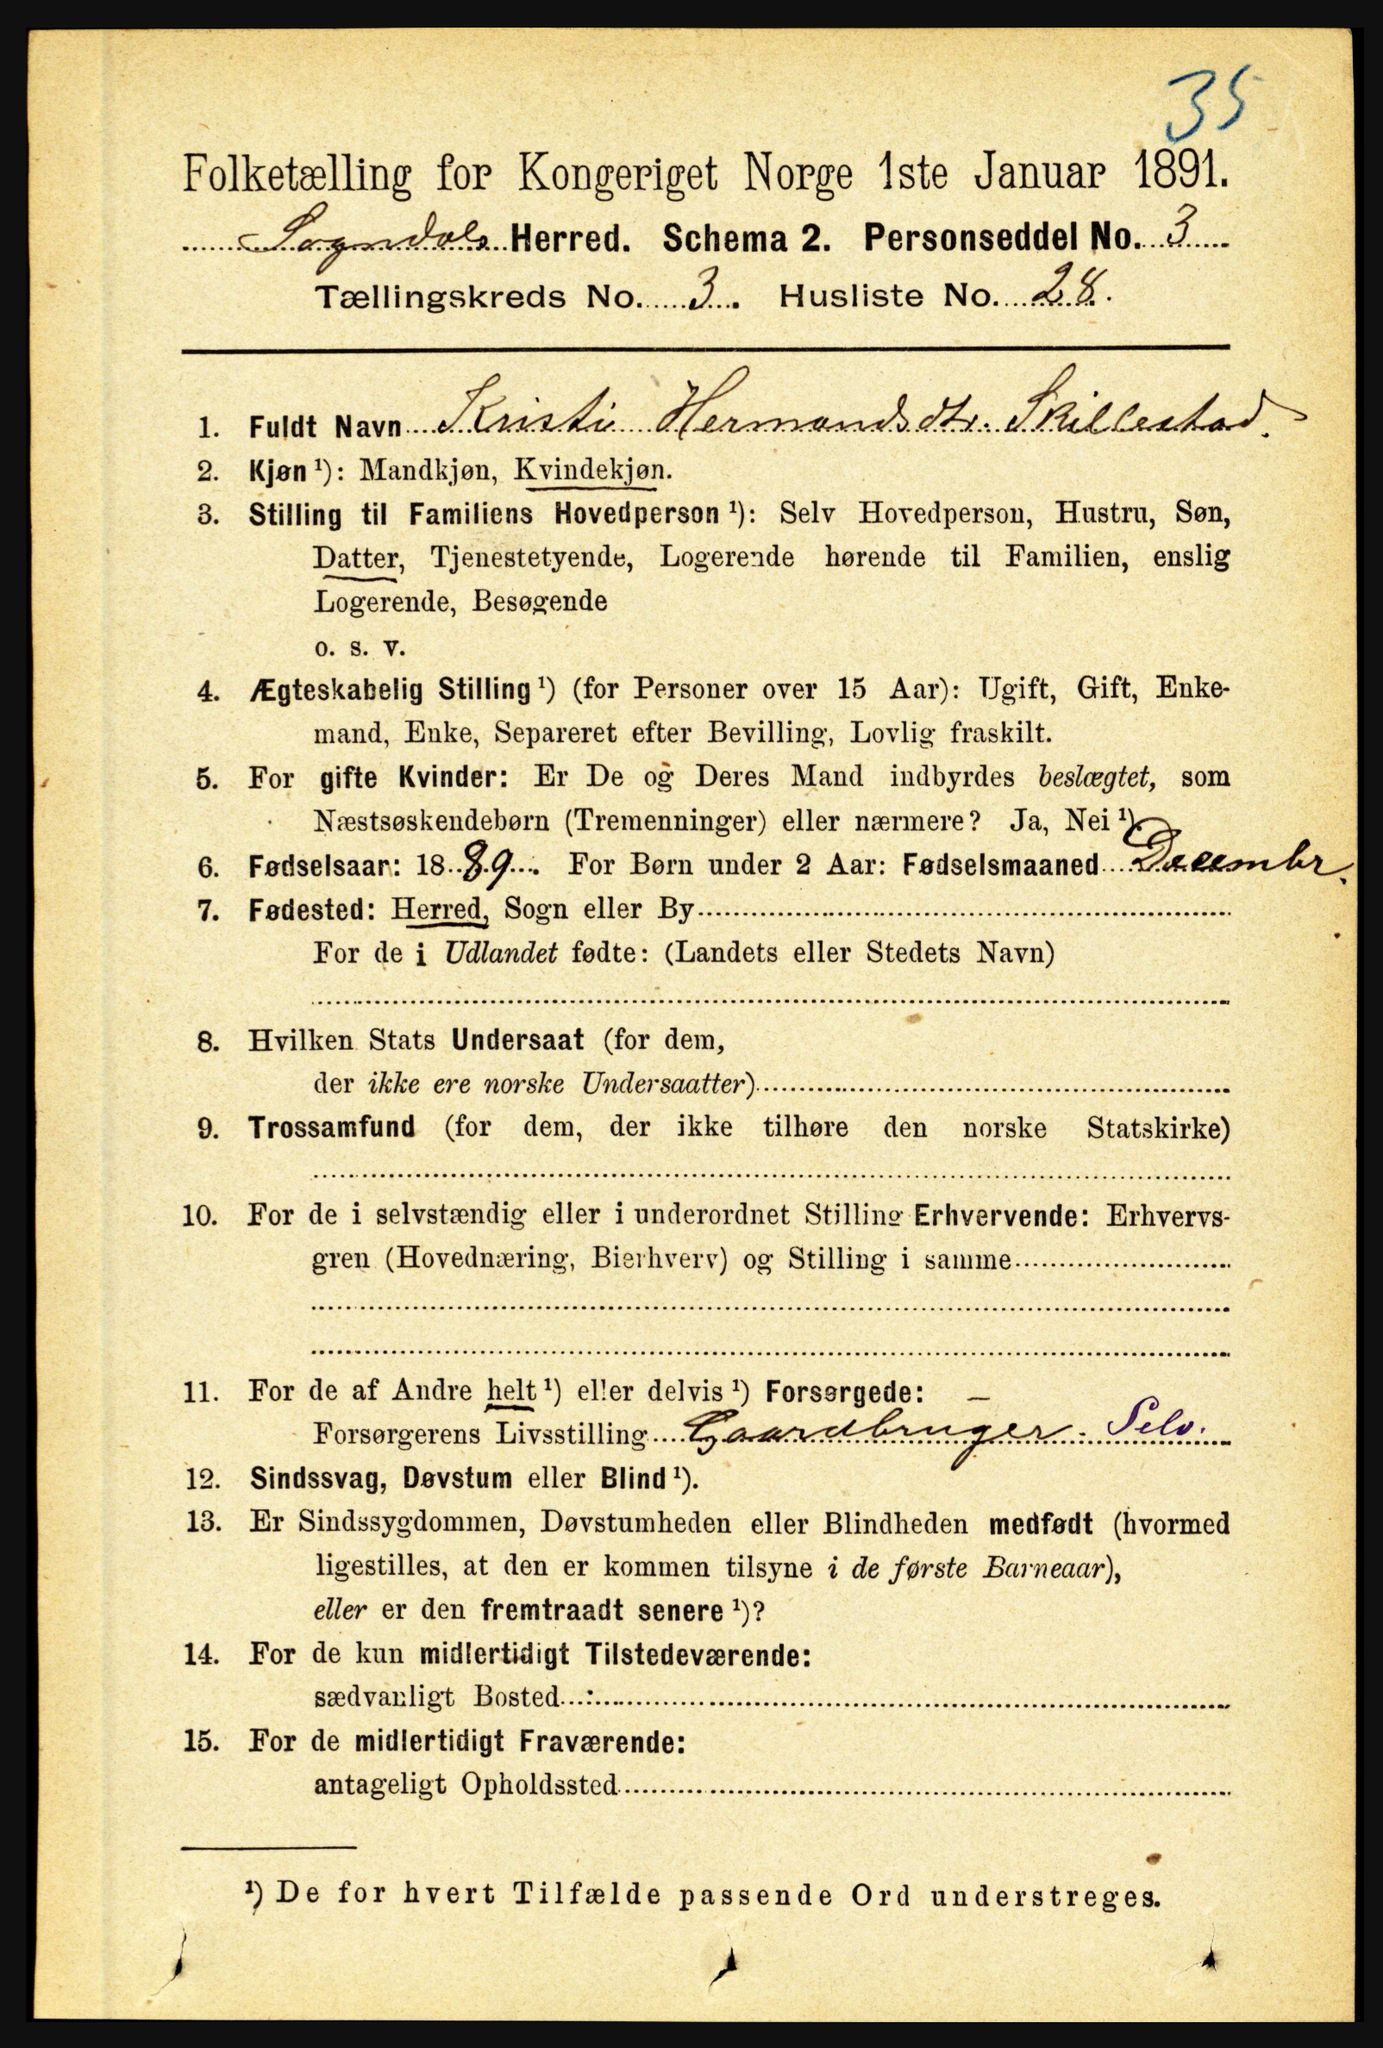 35
Folketælling for Kongeriget Norge 1ste Januar 1891.
Sogndals Herred. Schema 2. Personseddel No. 3
Tællingskreds No. 3. Husliste No. 28.
1. Fuldt Navn Kristi Hermundsdtr. Skillestad.
2. Kjøn ¹): Mandkjøn, Kvindekjøn.
3. Stilling til Familiens Hovedperson ¹): Selv Hovedperson, Hustru, Søn,
Datter, Tjenestetyende, Logerende hørende til Familien, enslig
Logerende, Besøgende
o. s. v.
4. Ægteskabelig Stilling ¹) (for Personer over 15 Aar): Ugift, Gift, Enke-
mand, Enke, Separeret efter Bevilling, Lovlig fraskilt.
5. For gifte Kvinder: Er De og Deres Mand indbyrdes beslægtet, som
Næstsøskendebørn (Tremenninger) eller nærmere? Ja, Nei ¹)
6. Fødselsaar: 1889. For Børn under 2 Aar: Fødselsmaaned Decembr.
7. Fødested: Herred, Sogn eller By
For de i Udlandet fødte: (Landets eller Stedets Navn)
8. Hvilken Stats Undersaat (for dem,
der ikke ere norske Undersaatter)
9. Trossamfund (for dem, der ikke tilhøre den norske Statskirke)
10. For de i selvstændig eller i underordnet Stilling Erhvervende: Erhvervs-
gren (Hovednæring, Bierhverv) og Stilling i samme
11. For de af Andre helt ¹) eller delvis ¹) Forsørgede: —
Forsørgerens Livsstilling Gaardbruger. Selv.
12. Sindssvag, Døvstum eller Blind ¹).
13. Er Sindssygdommen, Døvstumheden eller Blindheden medfødt (hvormed
ligestilles, at den er kommen tilsyne i de første Barneaar),
eller er den fremtraadt senere ¹)?
14. For de kun midlertidigt Tilstedeværende:
sædvanligt Bosted
15. For de midlertidigt Fraværende:
antageligt Opholdssted
¹) De for hvert Tilfælde passende Ord understreges.